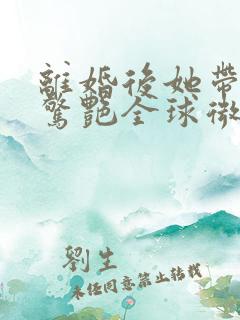 離婚後她帶
驚艷全球微
劉生
未经同意禁止转载